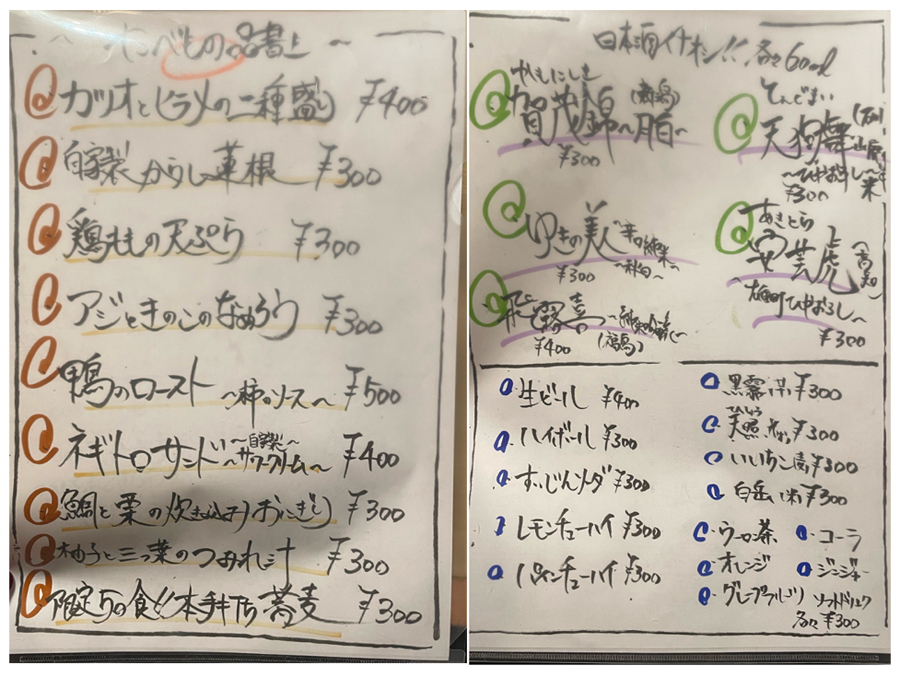 ～ たべもの品書き ～
カツオとヒラメの二種盛り ¥400
自家製からし蓮根 ¥300
鶏ももの天ぷら ¥300
アジときのこのなめろう ¥300
鴨のロースト ～柿のソース～ ¥500
ネギトロサンド ～自家製サワークリーム～ ¥400
鯛と栗の炊き込み(おにぎり) ¥300
柚子と三つ葉のつみれ汁 ¥300
限定5の食!! 本手打ち蕎麦 ¥300
日本酒イチオシ!! 各々60ml
かもにしき
賀茂錦～ ～
¥300
てんぐまい
天狗舞 (石川)
山廃
～ひやおろし～
¥300
ゆきの美人 純米
～秋田～
¥300
あきとら
安芸虎 (高知)
ひやおろし～
¥300
飛露喜
(福島)
¥400
生ビール ¥400
ハイボール ¥300
すいじんソーダ ¥300
レモンチューハイ ¥300
パインチューハイ ¥300
黒霧 芋 ¥300
天照 ¥300
いいちこ 麦 ¥300
白岳 米 ¥300
ウーロン茶 コーラ
オレンジ ジンジャー
グレープフルーツ ソフトドリンク
各々 ¥300